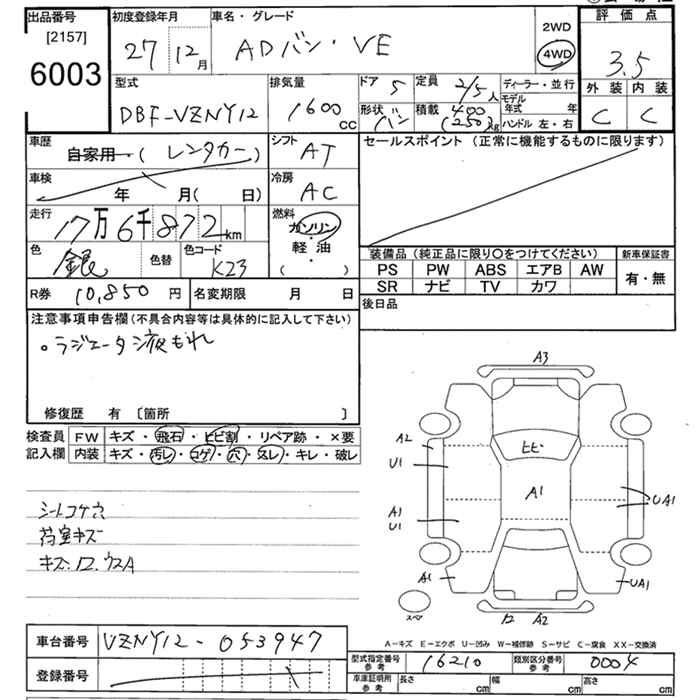 出品番号 [2157] 6003
初度登録年月 27 12月
車名・グレード ADバン・VE
2WD 4WD
評価点 3.5
外装 内装
C C
型式 DBF-VZNY12
排気量 1600 cc
ドア 5 定員 2/5人
形状 バン 積載 400 (250)kg
ディーラー・並行
モデル年式 年
ハンドル 左・右
車歴 自家用・(レンタカー)
シフト AT
セールスポイント (正常に機能するものに限ります)
車検 年 月( 日)
冷房 AC
走行 17万6千872km
燃料 ガソリン・軽・油 ( )
色 銀 色替 色コード K23
装備品 (純正品に限り○をつけてください)
新車保証書
PS PW ABS エアB AW
SR ナビ TV カワ
有・無
R券 10,850円 名変期限 月 日
後日品
注意事項申告欄 (不具合内容等は具体的に記入して下さい)
○ラジエータ液もれ
修復歴 有 〔箇所 〕
検査員記入欄
FW キズ・飛石・ヒビ割・リペア跡・×要
内装 キズ・汚レ・コゲ・穴・スレ・キレ・破レ
シートコゲ穴
荷室キズ
キズ.ワ.ウスA
A3
A2
U1
ヒビ
A1
A1
U1
UA1
A1
UA1
スペア
12 A2
A-キズ E-エクボ U-凹み W-補修跡 S-サビ C-腐食 XX-交換済
車台番号 VZNY12-053947
型式指定番号参考 16210 類別区分番号参考 0004
登録番号
車庫証明用参考 長さ cm 幅 cm 高さ cm